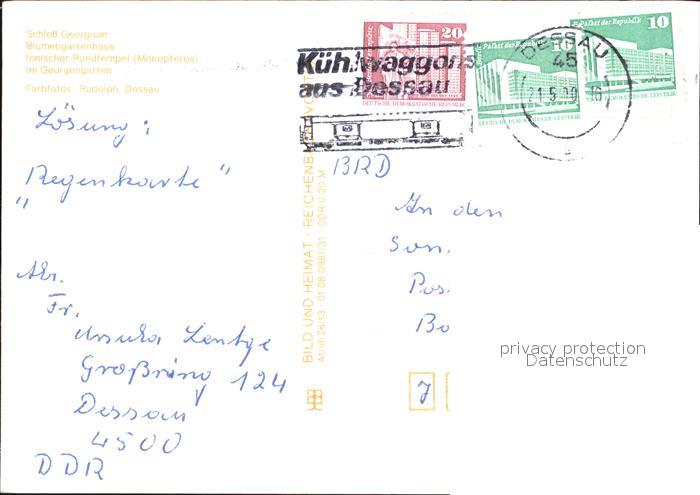 Schloß Georgium
Blumengartenhaus
Ionischer Rundtempel (Monopteros)
im Georgengarten
Farbfotos: Rudolph, Dessau
Lösung:
"Regenkarte"
Abs.
Fr.
Ursula Lentge
Großring 124
Dessau
4500
DDR
BILD UND HEIMAT · REICHENBACH
A1/III/26/13 01 08 0981/31 DDR 0,20 M
Kühlwaggons
aus Dessau
20
DEUTSCHE DEMOKRATISCHE REPUBLIK
Berlin, Palast der Republik 10
DEUTSCHE DEMOKRATISCHE REPUBLIK
Palast der Republik 10
DEUTSCHE DEMOKRATISCHE REPUBLIK
DESSAU
45
BRD
An den
J
privacy protection
Datenschutz